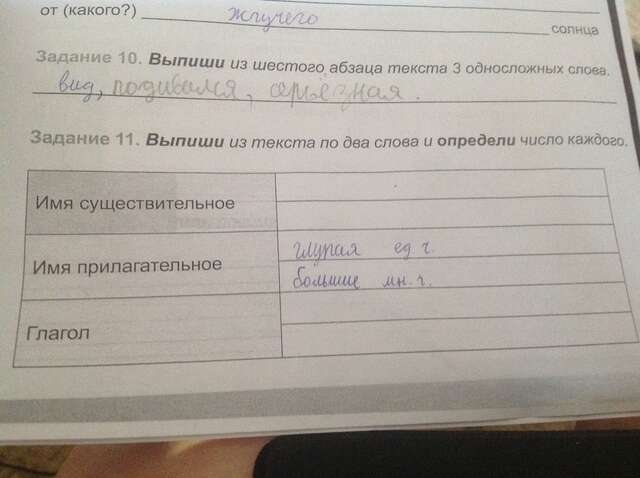 от (какого?) жгучего солнца
Задание 10. Выпиши из шестого абзаца текста 3 односложных слова.
вид, подивался, серьёзная.
Задание 11. Выпиши из текста по два слова и определи число каждого.
Имя существительное
Имя прилагательное
глупая ед ч.
большие мн. ч.
Глагол